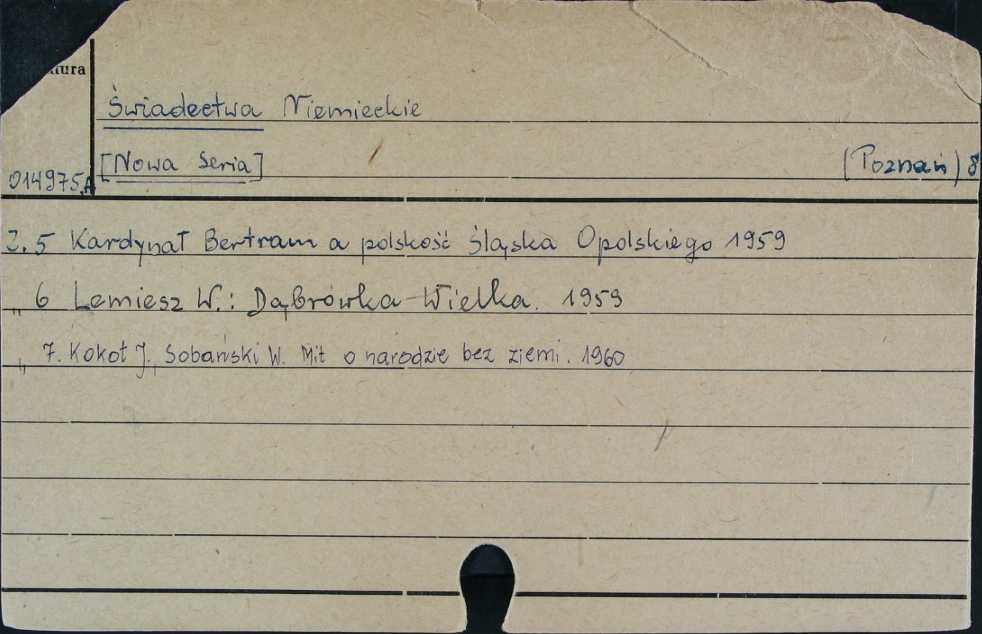 Świadectwa Niemieckie
[Nowa Seria] (Poznań) 8
014975.A
Z. 5 Kardynał Bertram a polskość Śląska Opolskiego 1959
„ 6 Lemiesz W.: Dąbrówka-Wielka. 1959
„ 7. Kokot J., Sobański W. Mit o narodzie bez ziemi. 1960